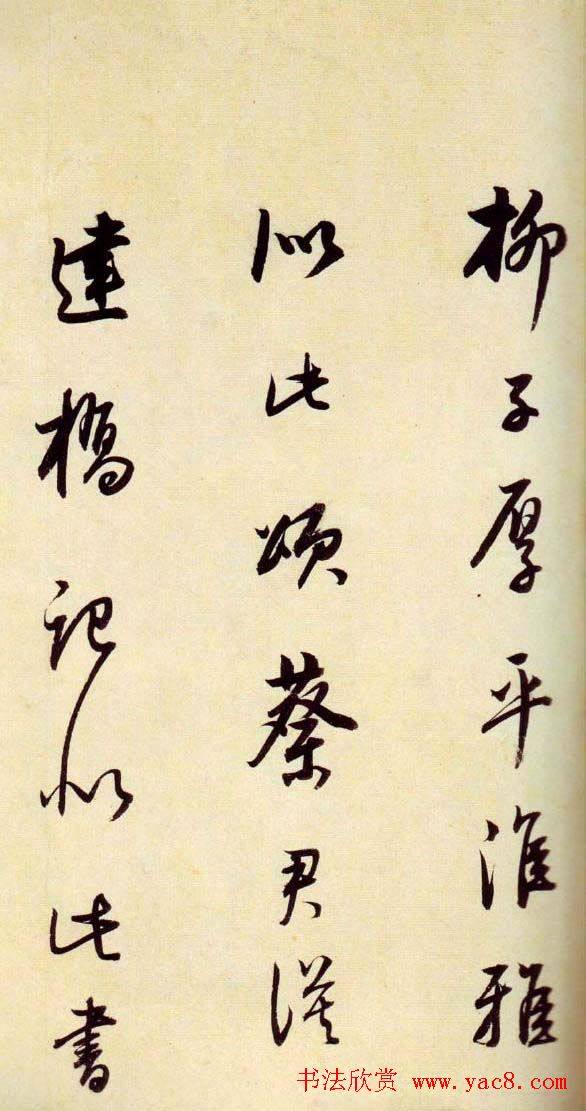 柳子厚平淮雅
似此頌蔡君謨
達橋記似此書
书法欣赏 www.yac8.com